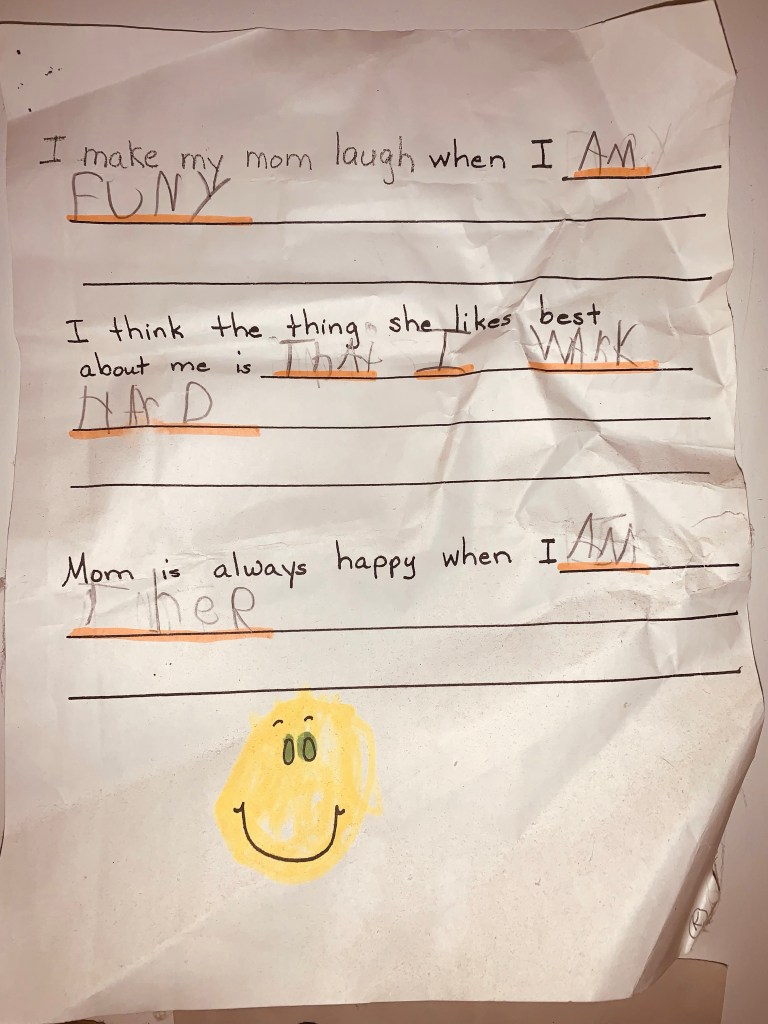 I make my mom laugh when I AM
FUNY
I think the thing she likes best
about me is ThAt I WArK
HArD
Mom is always happy when I AM
TheR